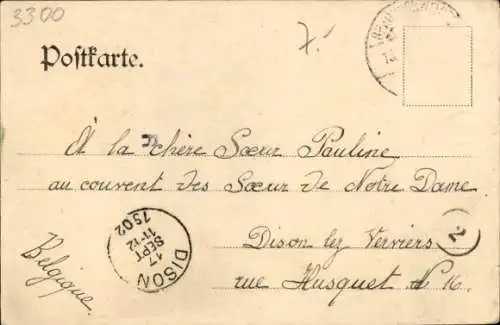 3300
7.-
Postkarte.
À la chère Sœur Pauline
au couvent des Sœur de Notre Dame
Dison lez Verviers
rue Husquet N K.
Belgique.
2
DISON
17
SEPT
11-12
1902